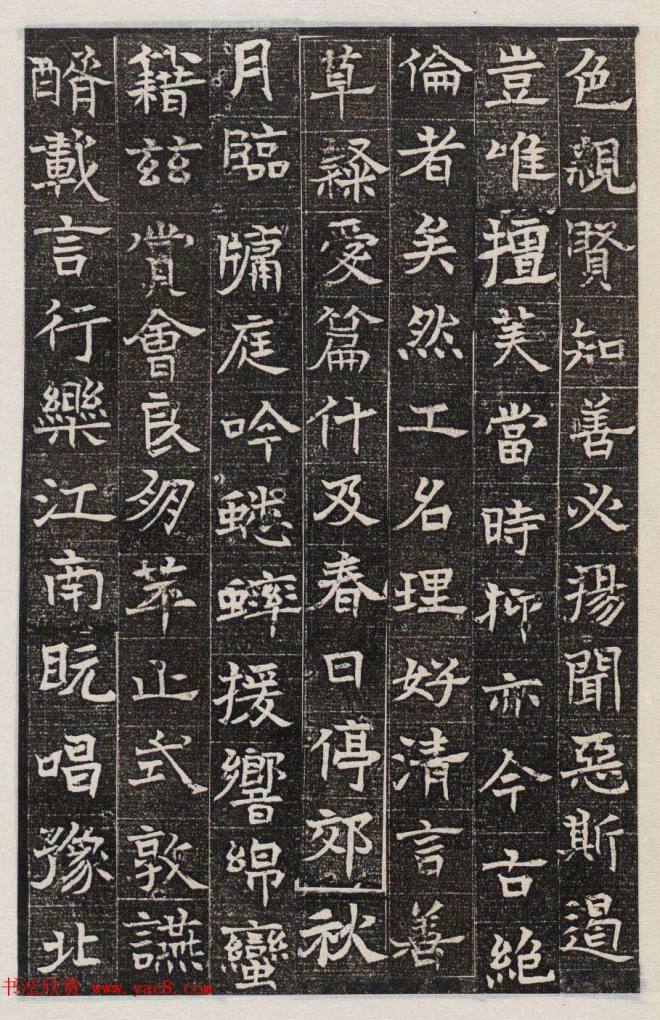 色親賢知善必揚聞惡斯遏
豈唯擅美當時抑亦今古絶
倫者矣然工名理好清言善
草隸愛篇什及春日停郊秋
月臨牖庭吟蟋蟀援響綿蠻
籍玆賞會良朋萃止式敦讌
醑載言行樂江南既唱豫北
书法欣赏 www.yac8.com